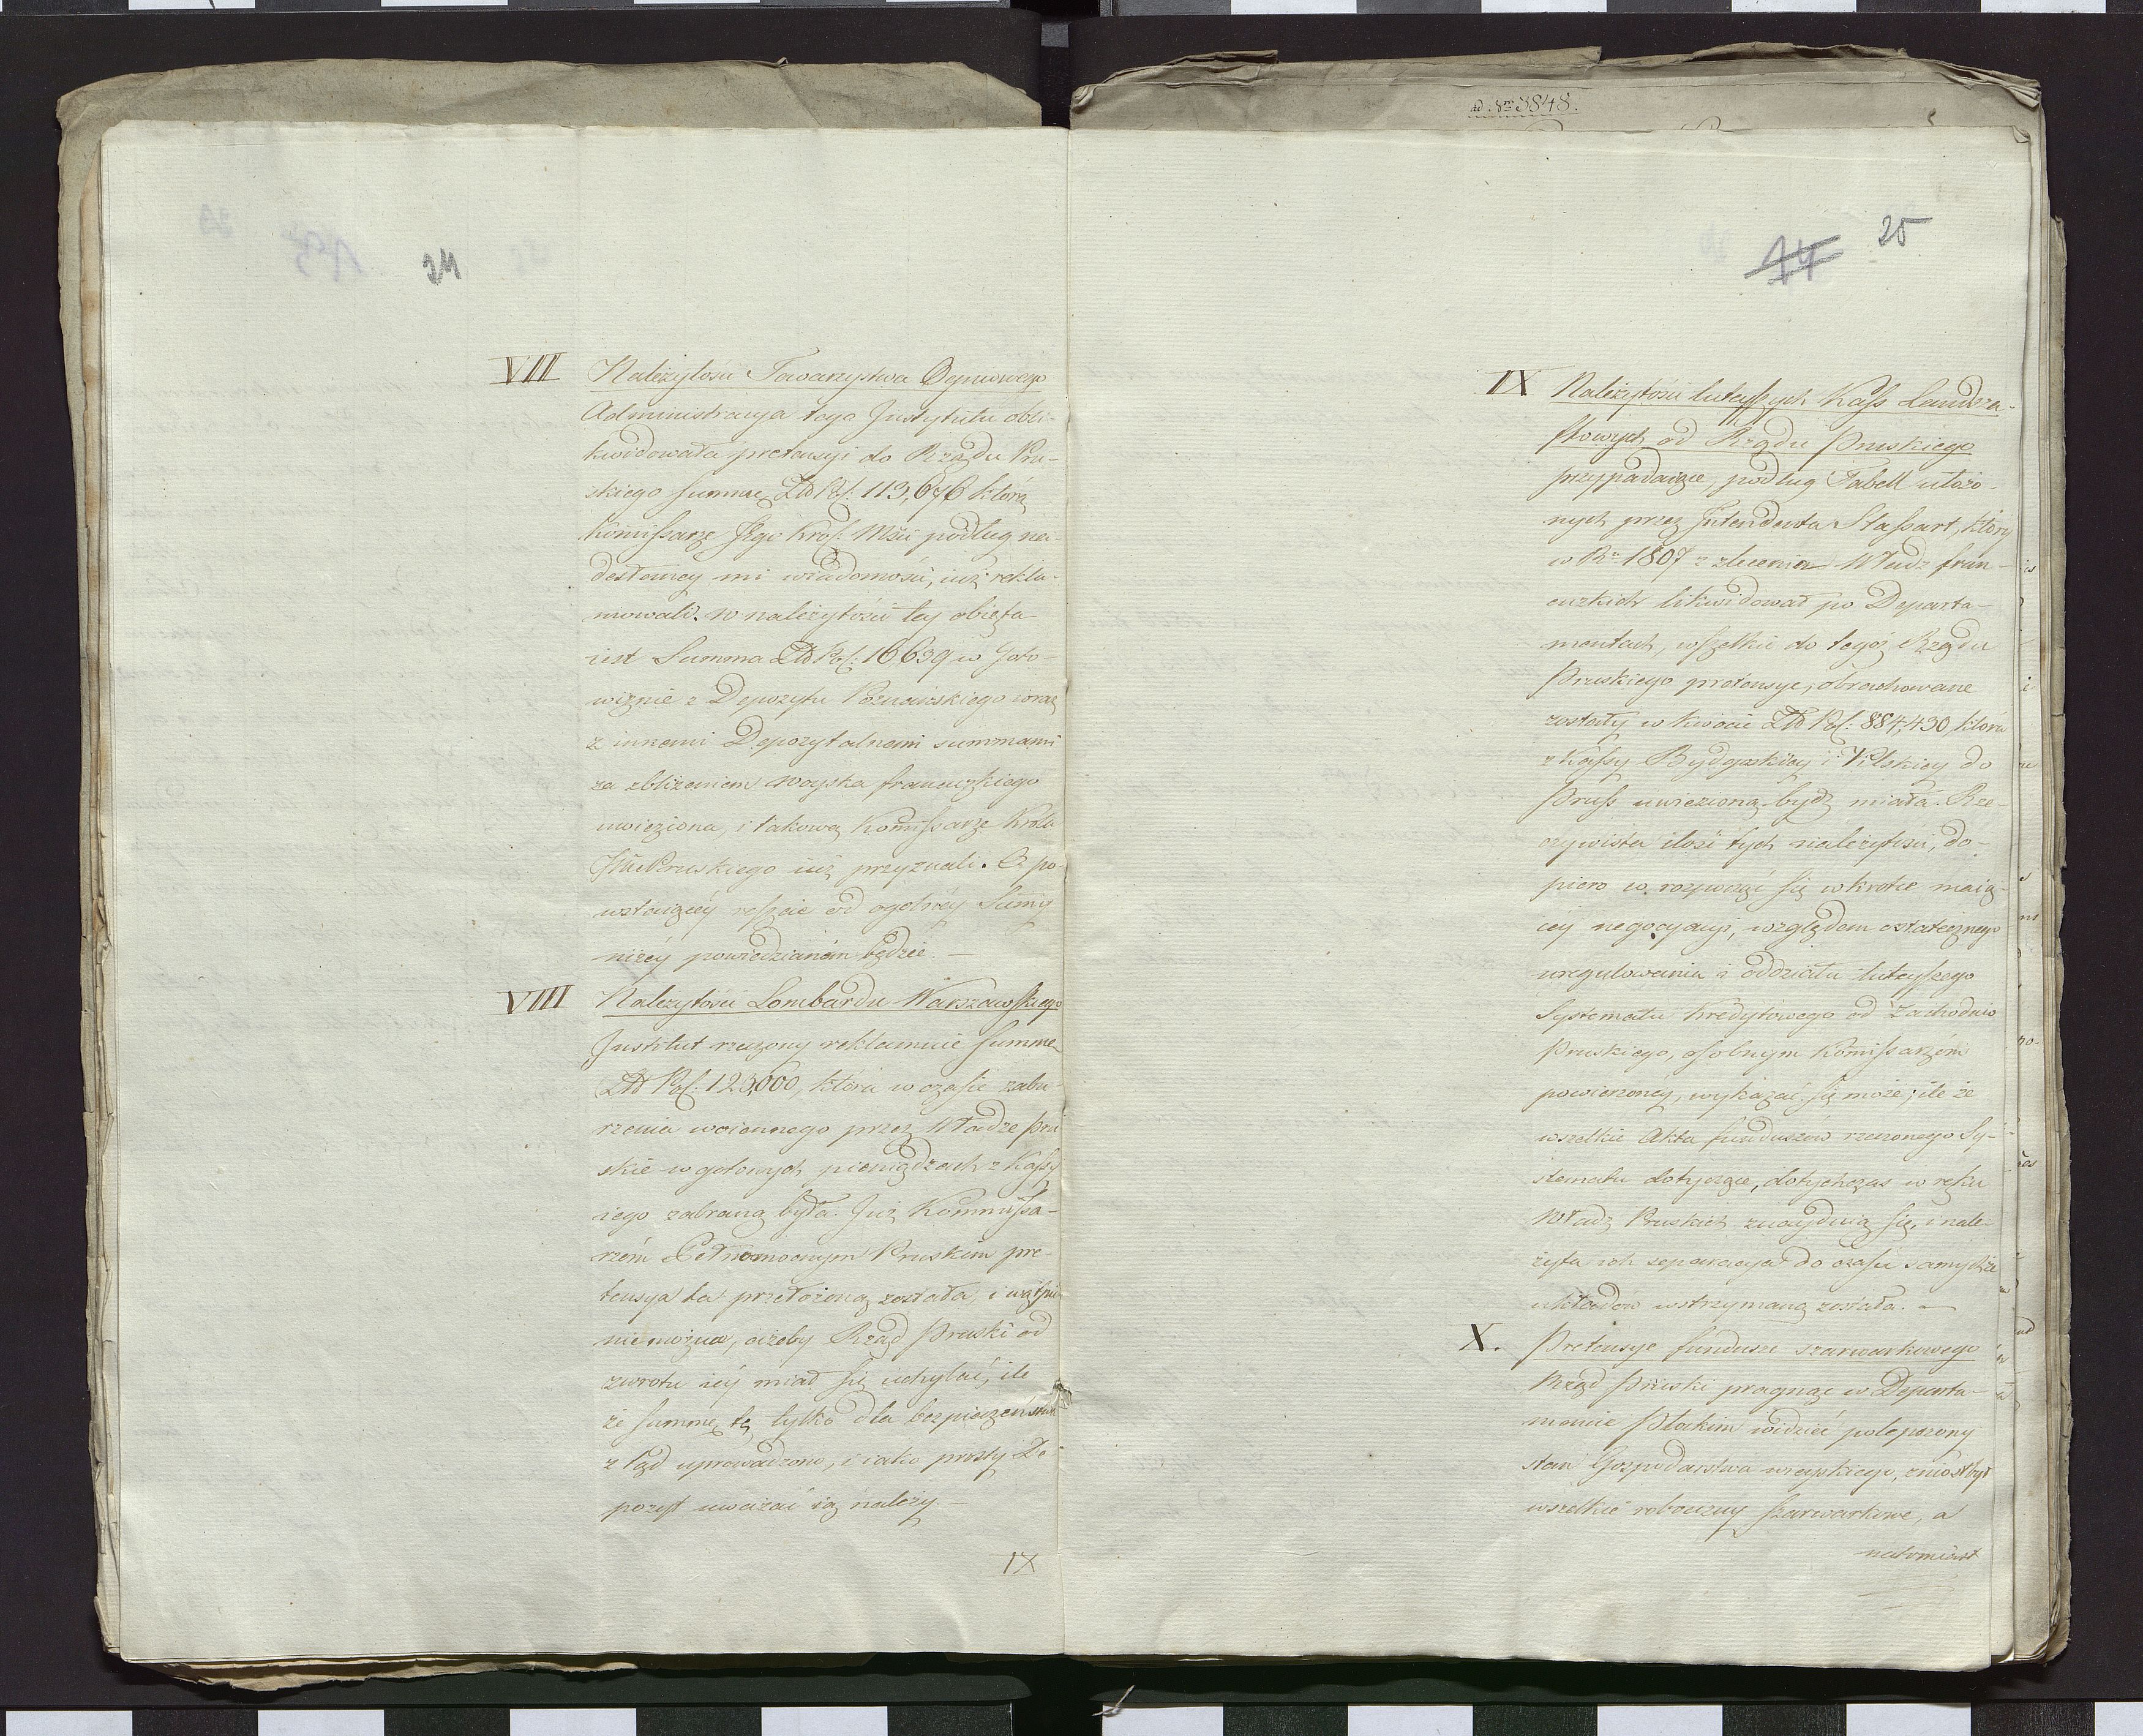 24
VII Należytości Towarzystwa Ogniowego
Administracya tego Instytutu obli-
kwidowała pretensyi do Rządu Pru-
skiego summę Złt Pol: 113,676 którą
Kommissarze Jego Król: Mści podług na-
desłaney mi wiadomości, iuż rekla-
mowali. W należytości tey obięta
iest Summa Złt Pol: 16639 w Goto-
wiznie z Depozytu Poznańskiego wraz
z innemi Depozytalnemi summami
za zbliżeniem woyska francuzkiego
uwieziona, i takową Kommissarze Króla
JMci Pruskiego iuż przyznali. O po-
wstaiącéy reszcie od ogólnéy Sumy
niżéy powiedzianém będzie. —
VIII Należytości Lombardu Warszawskiego
Institut rzeczony reklamuie summę
Złt Pol: 120,000, która w czasie zabu-
rzenia woiennego przez Władze Pru-
skie w gotowych pieniądzach z Kassy
iego zabraną była. Już Kommissa-
rzóm Pełnomocnym Pruskim pre-
tensya ta przełożoną została, i wątpić
nie można, ażeby Rząd Pruski od
zwrotu iéy miał się uchylać, ile
że summę tę tylko dla bezpieczeństwa
z tąd uprowadzono, i iako prosty De-
pozyt uważać ią należy. —
IX
ad Nrm 3848.
25
IX Należytości tuteyszych Kass Landsza-
ftowych od Rządu Pruskiego
przypadaiące, podług Tabell ułożo-
nych przez Intendenta Stassart, który
w Ru 1807 z zlecenia Władz fran-
cuzkich likwidował po Departa-
mentach, wszelkie do tegoż Rządu
Pruskiego pretensye, obrachowane
zostały w kwocie Złt Pol: 884,430, która
z Kassy Bydgoskiey i Pilskiey do
Pruss uwiezioną bydź miała. Rze-
czywista ilość tych należytości, do-
piero w rozpocząć się wkrotce maią-
céy negocyacyi, względem ostatecznego
uregulowania i oddziału tuteyszego
Systematu Kredytowego od Zachodnio
Pruskiego, osobnym Kommissarzóm
powierzonéy, wykazać się może; ile że
wszelkie Akta funduszów rzeczonego Sy-
stematu dotyczące, dotychczas w ręku
Władz Pruskich znayduią się, i nale-
żyta ich separacya do czasu samychże
układów wstrzymaną została. —
X. Pretensye funduszu szarwarkowego
Rząd Pruski pragnąc w Departa-
mencie Płockim widzieć polepszony
stan Gospodarstwa wieyskiego, zniósł był
wszelkie robocizny szarwarkowe, a
natomiast